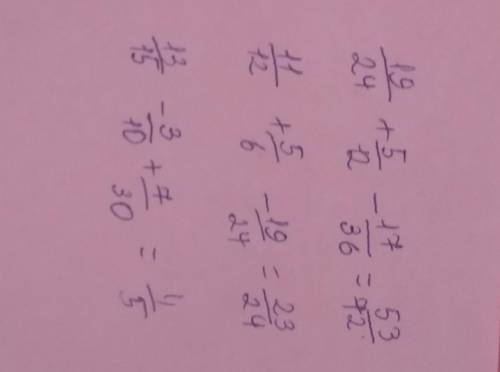 19/24 + 5/12 - 17/36 = 53/72
11/12 + 5/6 - 19/24 = 23/24
13/15 - 3/10 + 7/30 = 4/5